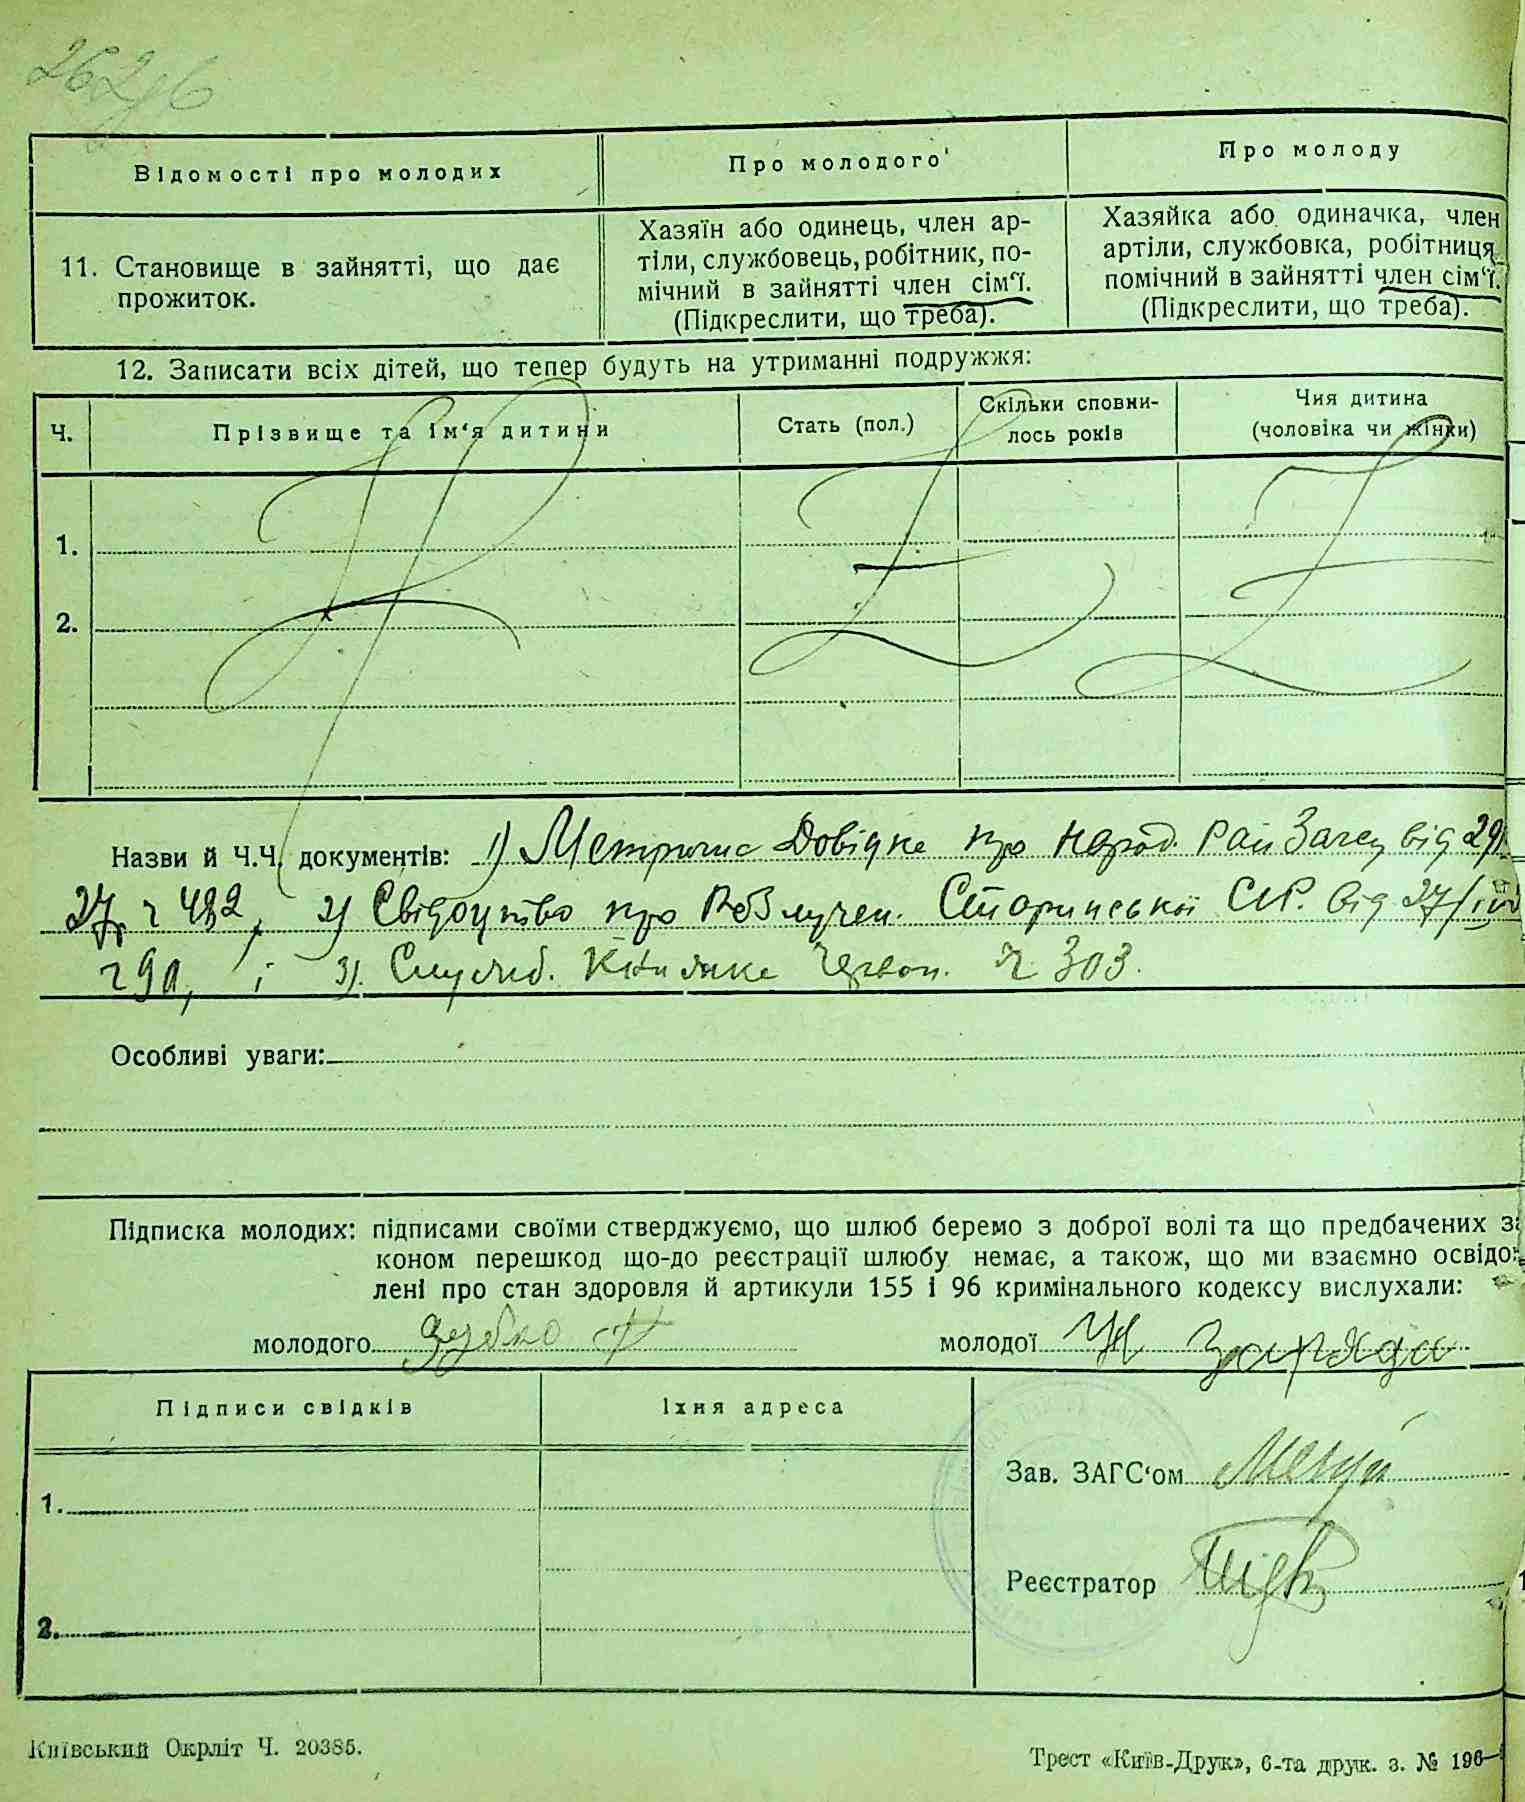 Відомості про молодих
Про молодого
Про молоду
11. Становище в зайнятті, що дає
прожиток.
Хазяїн або одинець, член ар-
тіли, службовець, робітник, по-
мічний в зайнятті член сім‘ї.
(Підкреслити, що треба).
Хазяйка або одиначка, член
артіли, службовка, робітниця
помічний в зайнятті член сім‘ї.
(Підкреслити, що треба).
12. Записати всіх дітей, що тепер будуть на утриманні подружжя:
Ч.
Прізвище та ім‘я дитини
Стать (пол.)
Скільки сповни-
лось років
Чия дитина
(чоловіка чи жінки)
1.
2.
Назви й Ч.Ч. документів: 1) Довідка про народ. від 29
27 р. ч 492, 2) Свідоцтво про від 27/
ч 90, і 3). ч 303.
Особливі уваги:
Підписка молодих: підписами своїми стверджуємо, що шлюб беремо з доброї волі та що предбачених за
коном перешкод що-до реєстрації шлюбу немає, а також, що ми взаємно освідом
лені про стан здоров‘я й артикули 155 і 96 кримінального кодексу вислухали:
молодого Зубко
молодої
Підписи свідків
Їхня адреса
1.
2.
Зав. ЗАГС‘ом
Реєстратор
Київський Окрліт Ч. 20385.
Трест «Київ-Друк», 6-та друк. з. № 196